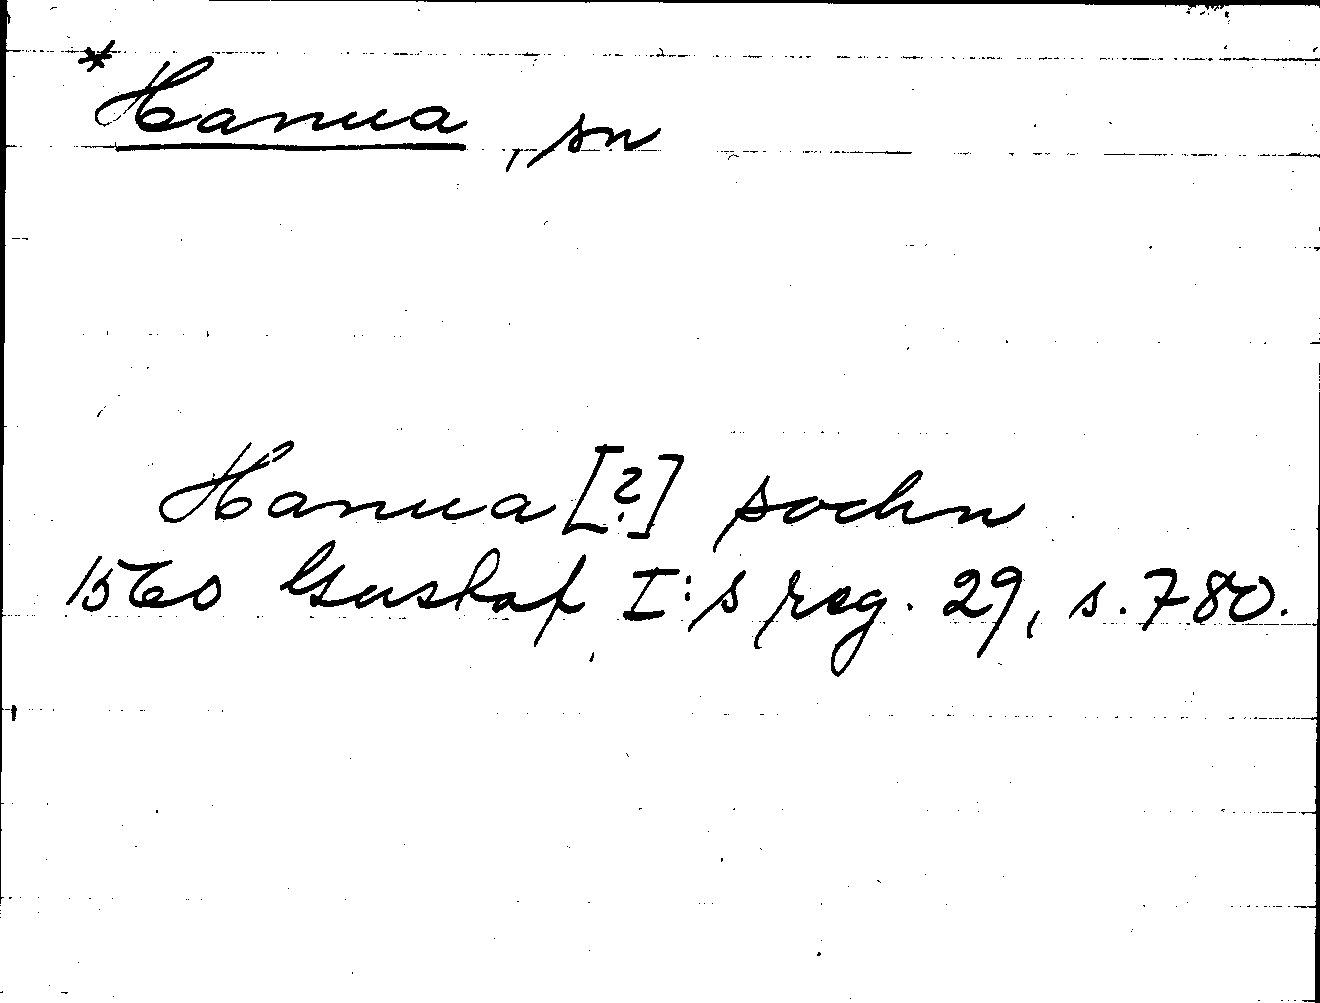 *Hanua, sn
Hanua [?] sochn
1560 Gustaf I:s reg. 29, s. 780.